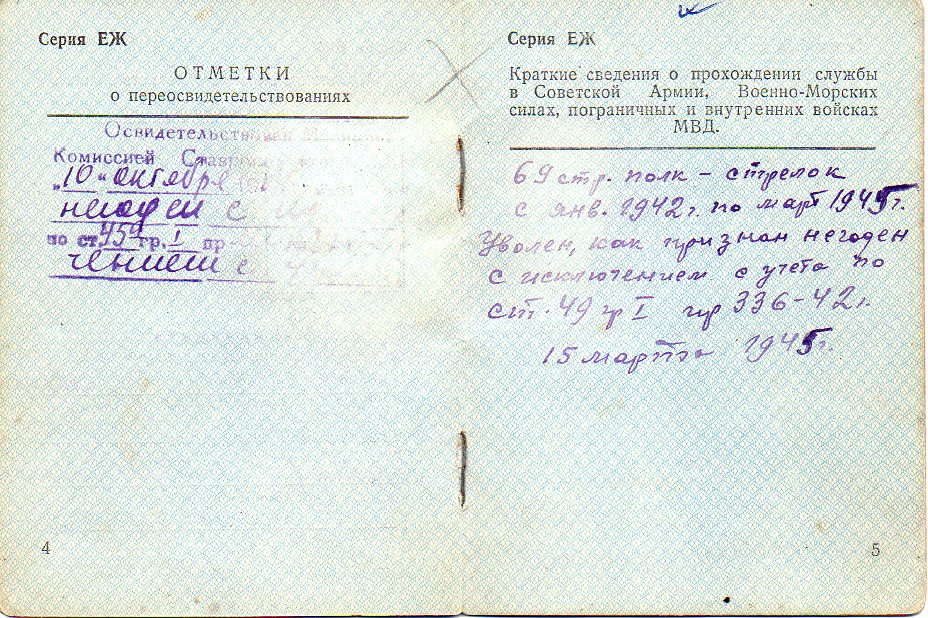 Серия ЕЖ
ОТМЕТКИ
о переосвидетельствованиях
Комиссией
„10“ октября
негоден с
по ст. гр. I пр
чением с
4
Серия ЕЖ
Краткие сведения о прохождении службы
в Советской Армии, Военно-Морских
силах, пограничных и внутренних войсках
МВД.
69 стр. полк – стрелок
с янв. 1942 г. по март 1945 г.
Уволен, как признан негоден
с исключением с учета по
ст. 49 гр I пр 336-42 г.
15 марта 1945 г.
5